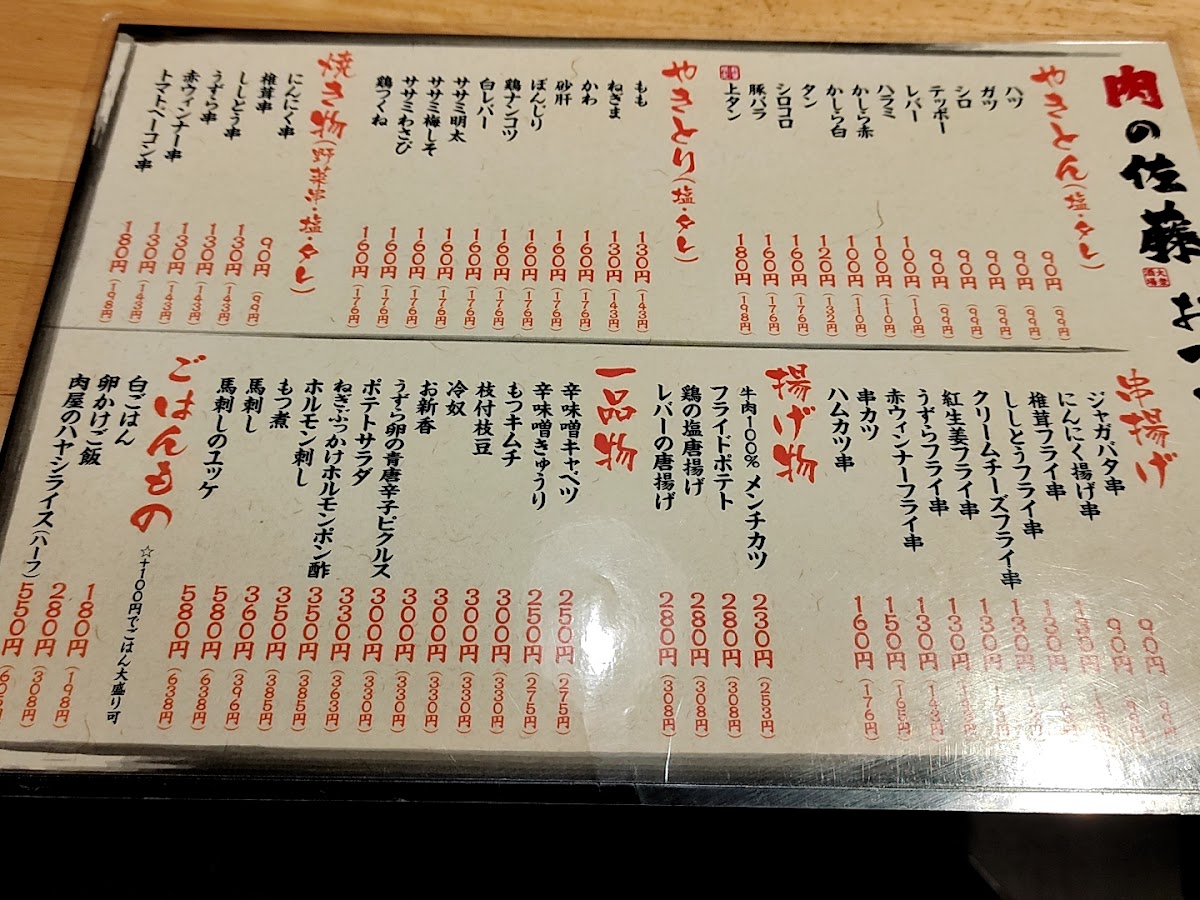 肉の佐藤
大衆酒場
やきとん(塩・タレ)
ハツ 90円(99円)
ガツ 90円(99円)
シロ 90円(99円)
テッポー 90円(99円)
レバー 90円(99円)
ハラミ 100円(110円)
かしら赤 100円(110円)
かしら白 100円(110円)
タン 120円(132円)
シロコロ 160円(176円)
豚バラ 160円(176円)
上タン 180円(198円)
やきとり(塩・タレ)
もも 130円(143円)
ねぎま 130円(143円)
かわ 160円(176円)
砂肝 160円(176円)
ぼんじり 160円(176円)
鶏ナンコツ 160円(176円)
白レバー 160円(176円)
ササミ明太 160円(176円)
ササミ梅しそ 160円(176円)
ササミわさび 160円(176円)
鶏つくね 160円(176円)
焼き物(野菜串・塩・タレ)
にんにく串 90円(99円)
椎茸串 130円(143円)
ししとう串 130円(143円)
うずら串 130円(143円)
赤ウィンナー串 130円(143円)
トマトベーコン串 180円(198円)
串揚げ
ジャガバタ串 90円(99円)
にんにく揚げ串 90円(99円)
椎茸フライ串
ししとうフライ串 130円
クリームチーズフライ串 130円
紅生姜フライ串 130円
うずらフライ串 130円(143円)
赤ウィンナーフライ串 130円(143円)
串カツ 150円(165円)
ハムカツ串 160円(176円)
揚げ物
牛肉100% メンチカツ 230円(253円)
フライドポテト 280円(308円)
鶏の塩唐揚げ 280円(308円)
レバーの唐揚げ 280円(308円)
一品物
辛味噌キャベツ 250円(275円)
辛味噌きゅうり 250円(275円)
もつキムチ 300円(330円)
枝付枝豆 300円(330円)
冷奴 300円(330円)
お新香 300円(330円)
うずら卵の青唐辛子ピクルス 300円(330円)
ポテトサラダ 330円(363円)
ねぎぶっかけホルモンポン酢 350円(385円)
ホルモン刺し 350円(385円)
もつ煮 360円(396円)
馬刺し 580円(638円)
馬刺しのユッケ 580円(638円)
ごはんもの
☆+100円でごはん大盛り可
白ごはん 180円(198円)
卵かけご飯 280円(308円)
肉屋のハヤシライス(ハーフ) 550円(605円